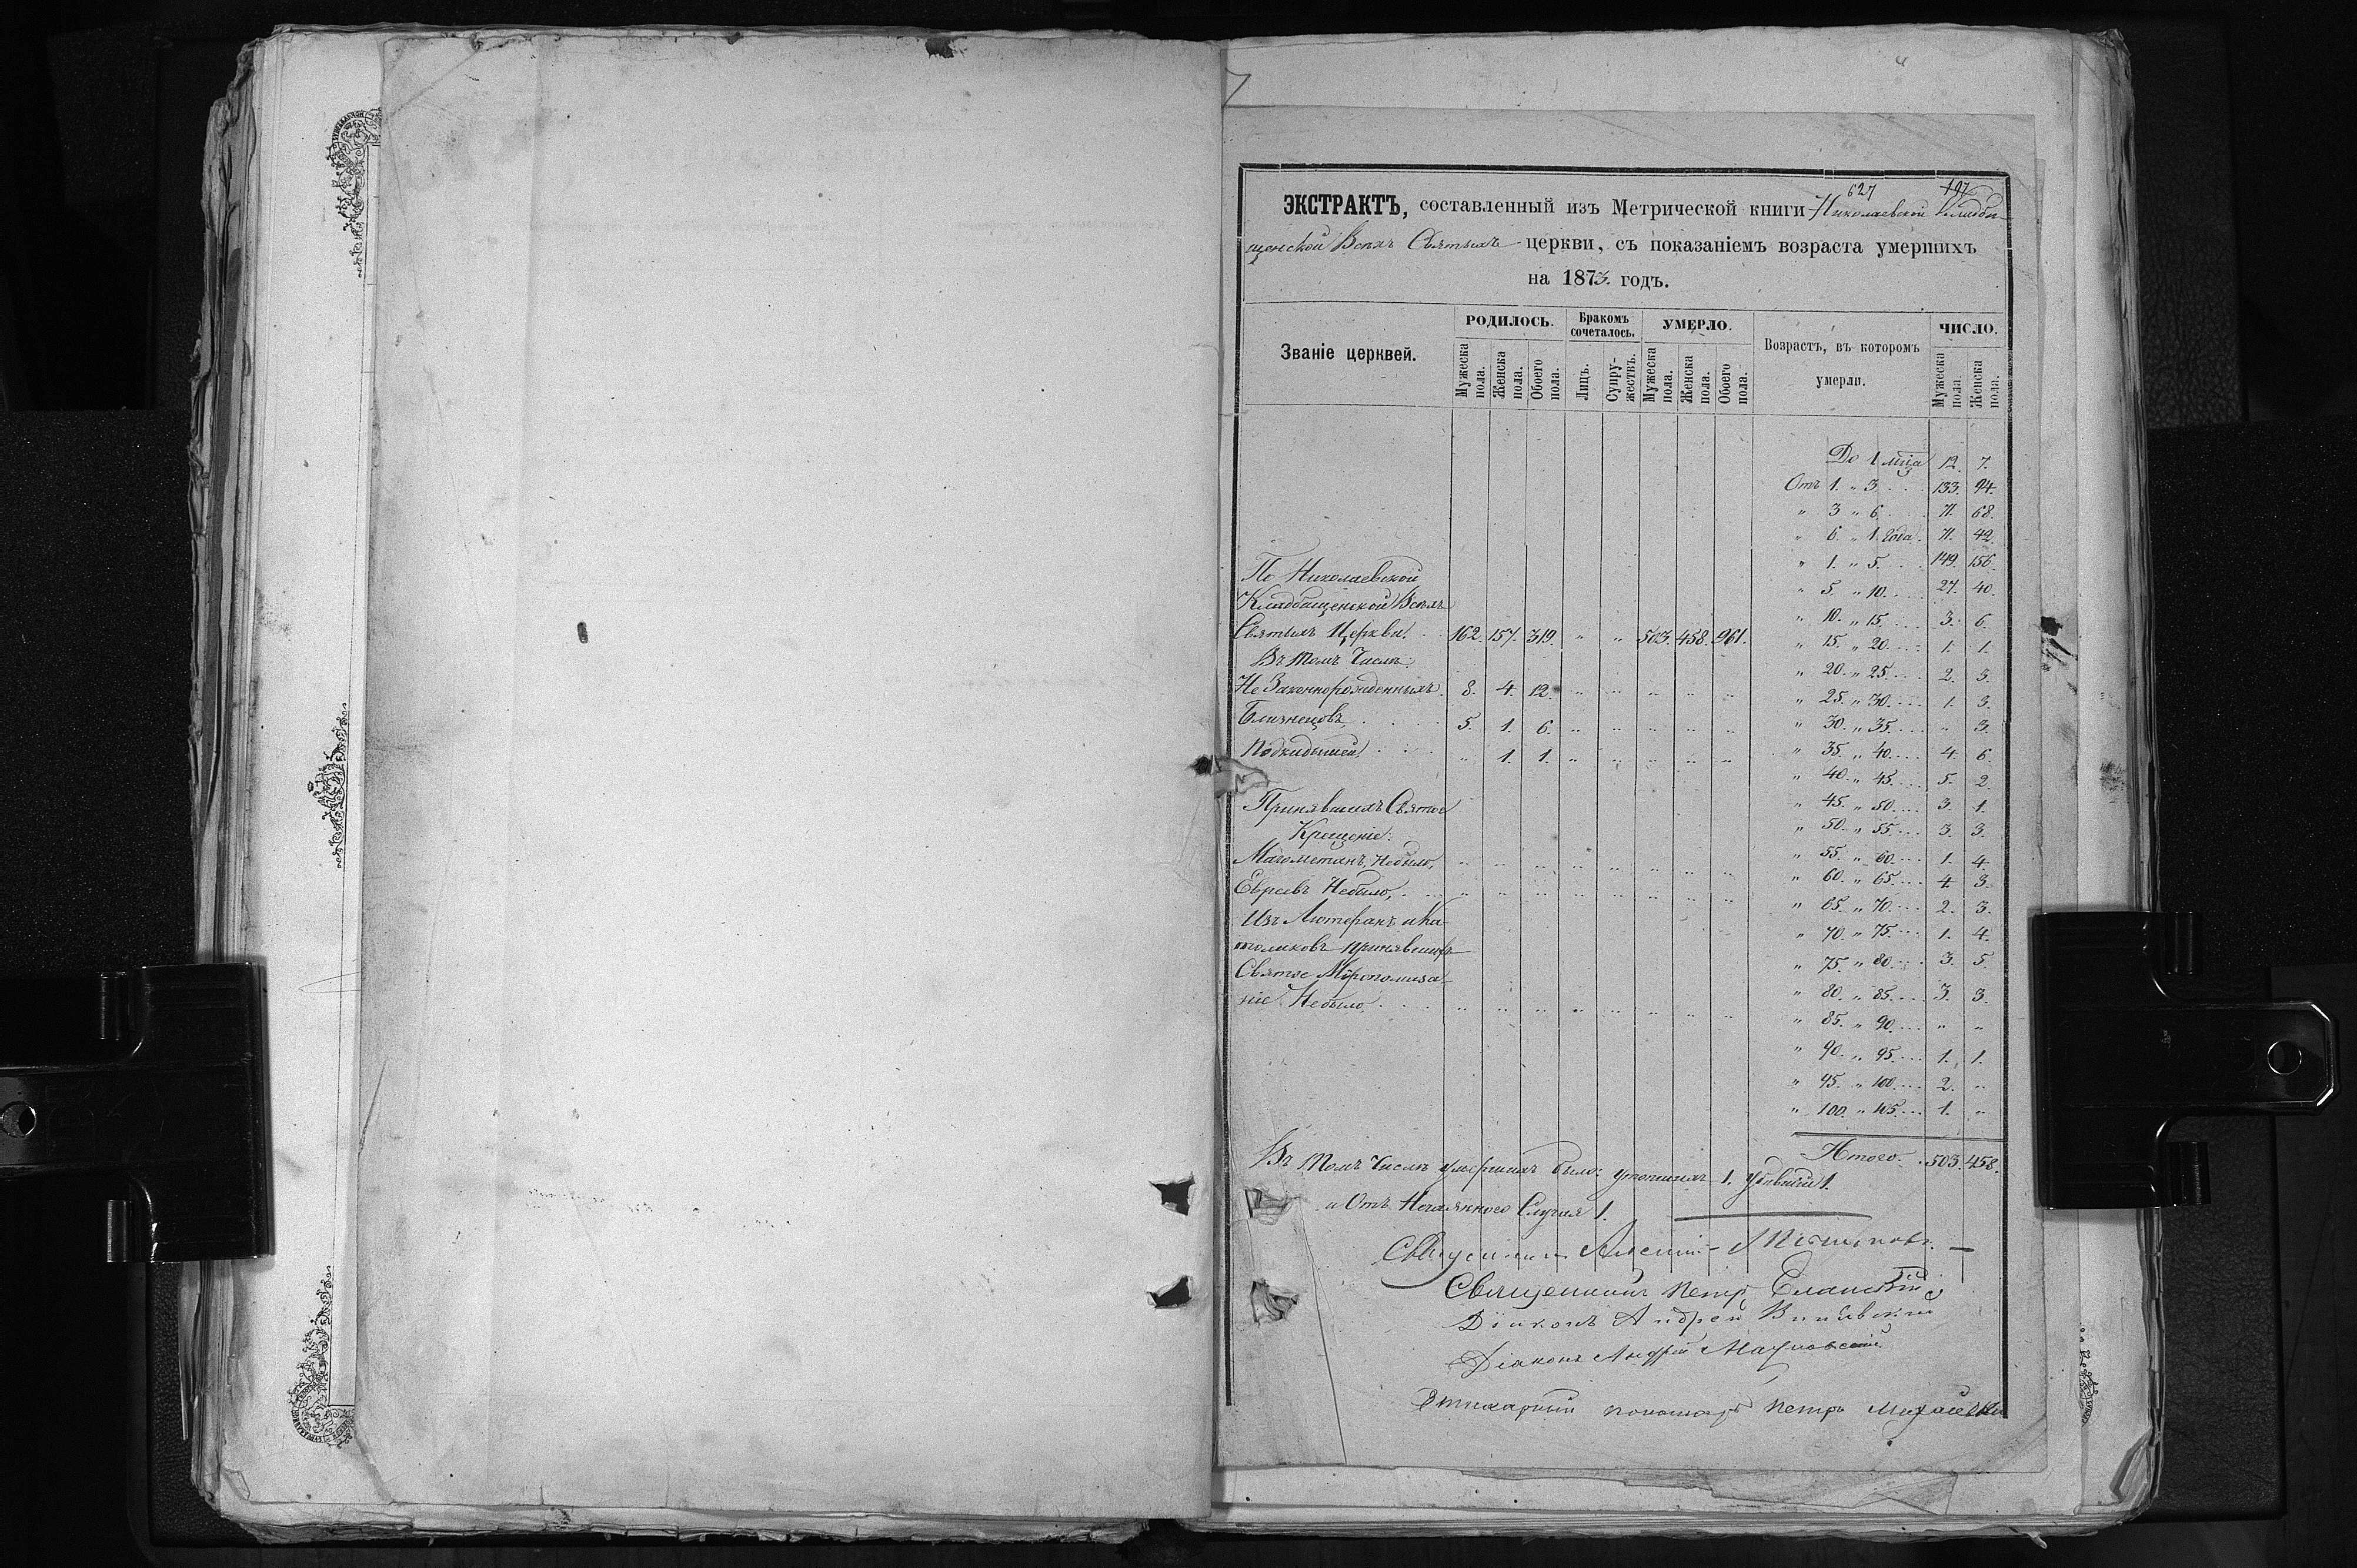 627 197
ЭКСТРАКТЪ, составленный изъ Метрической книги Николаевской Кладби-
щенской Всѣхъ Святыхъ церкви, съ показаніемъ возраста умершихъ
на 1873. годъ.
Званіе церквей. РОДИЛОСЬ. Бракомъ сочеталось. УМЕРЛО. Возрастъ, въ которомъ умерли. ЧИСЛО.
Мужеска пола. Женска пола. Обоего пола. Лицъ. Супружествъ. Мужеска пола. Женска пола. Обоего пола. Мужеска пола. Женска пола.
До 1 мца 12. 7.
Отъ 1. " 3 . . . 133. 94.
" 3 " 6 . . . 71. 68.
" 6. " 1 года. 71. 42.
" 1. " 5. . . . 149. 156.
" 5. " 10. . . . 27. 40.
" 10. " 15. . . . 3. 6.
" 15. " 20. . . . 1. 1.
" 20. " 25. . . . 2. 3.
" 25. " 30. . . . 1. 3.
" 30. " 35. . . . " 3.
" 35. " 40. . . . 4. 6.
" 40. " 45. . . . 5. 2.
" 45. " 50. . . . 3. 1.
" 50. " 55. . . . 3. 3.
" 55. " 60. . . . 1. 4.
" 60. " 65. . . . 4. 3.
" 65. " 70. . . . 2. 3.
" 70. " 75. . . . 1. 4.
" 75. " 80. . . . 3. 5.
" 80. " 85. . . . 3. 3.
" 85. " 90. . . . " "
" 90. " 95. . . . 1. 1.
" 95. " 100. . . . 2. "
" 100. " 105. . . . 1. "
Итого. 503. 458.
По Николаевской
Кладбищенской Всѣхъ
Святыхъ Церкви. . . 162. 157. 319. " " 503. 458. 961.
Въ томъ Числѣ:
Не Законнорожденныхъ. 8. 4. 12. " " " " "
Близнецовъ . . . . 5. 1. 6. " " " " "
Подкидышей . . . " 1. 1. " " " " "
Принявшихъ Святое
Крещеніе:
Магометанъ, Небыло, " " " " " " " "
Евреевъ Небыло, . . " " " " " " " "
Изъ Лютеранъ и Ка-
толиковъ принявшихъ
Святое Мѵропомаза-
ніе Небыло. . . . " " " " " " " "
Въ томъ Числѣ умершихъ было: утопшихъ 1. убившій 1.
и Отъ Нечаяннаго Случая 1.
Священникъ Алексій
Священникъ Петръ Еланскій
Діаконъ Андрей
Діаконъ Андрій
Стихарный пономарь Петръ